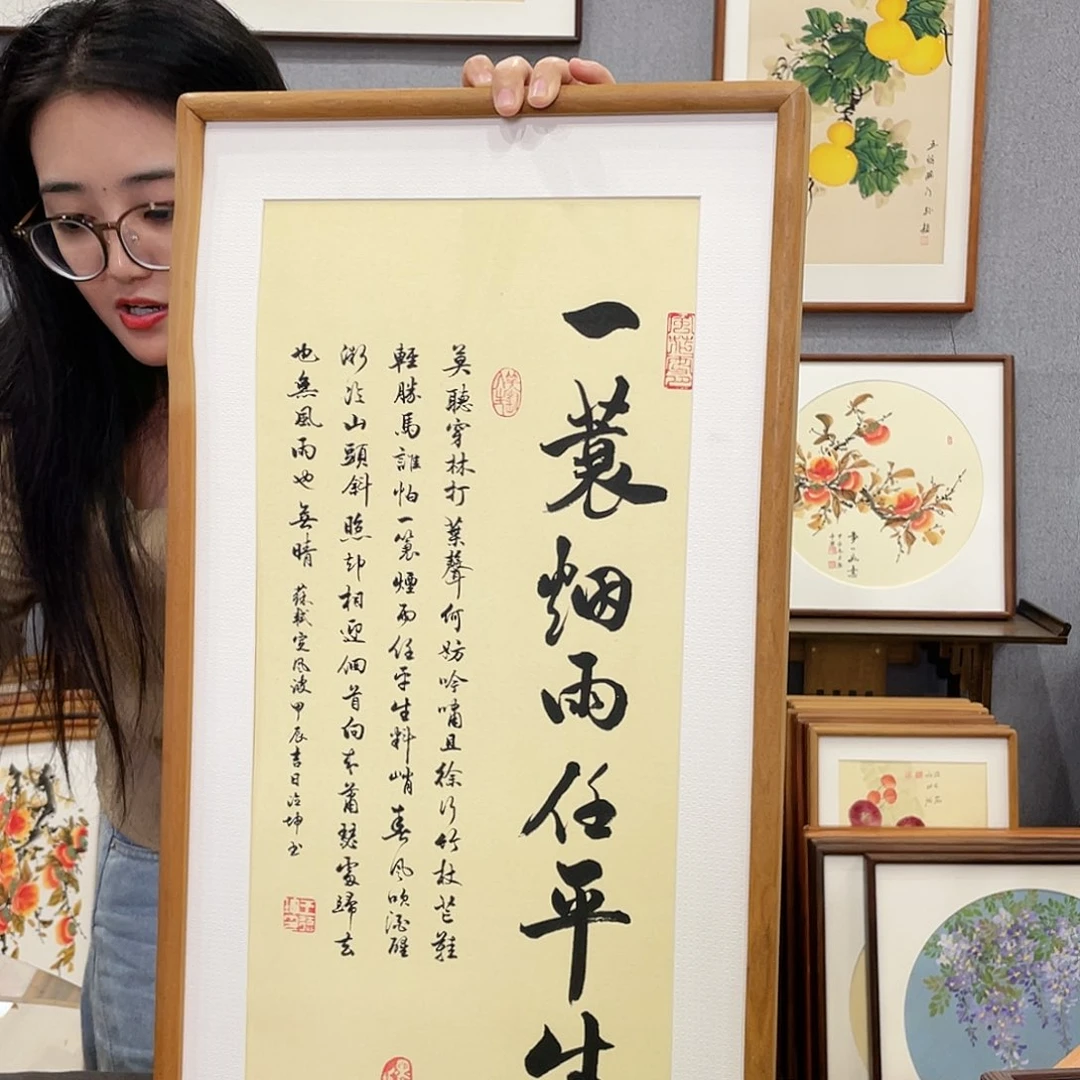 一蓑烟雨任平生
莫聽穿林打葉聲何妨吟嘯且徐行竹杖芒鞋
輕勝馬誰怕一蓑煙雨任平生料峭春風吹酒醒
微冷山頭斜照却相迎回首向來蕭瑟處歸去
也無風雨也無晴
蘇軾定風波甲辰吉日冶坤书